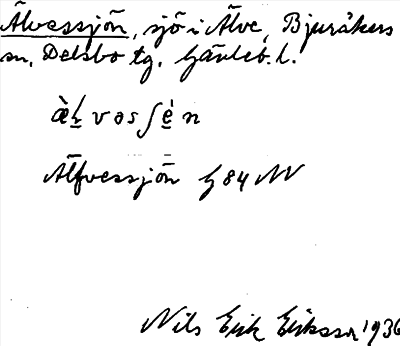 Älvessjön, sjö i Älve, Bjuråkers
sn, Delsbo tg. Gävleb. l.
Älfvessjön G 84 NV
Nils Erik Eriksson 1936